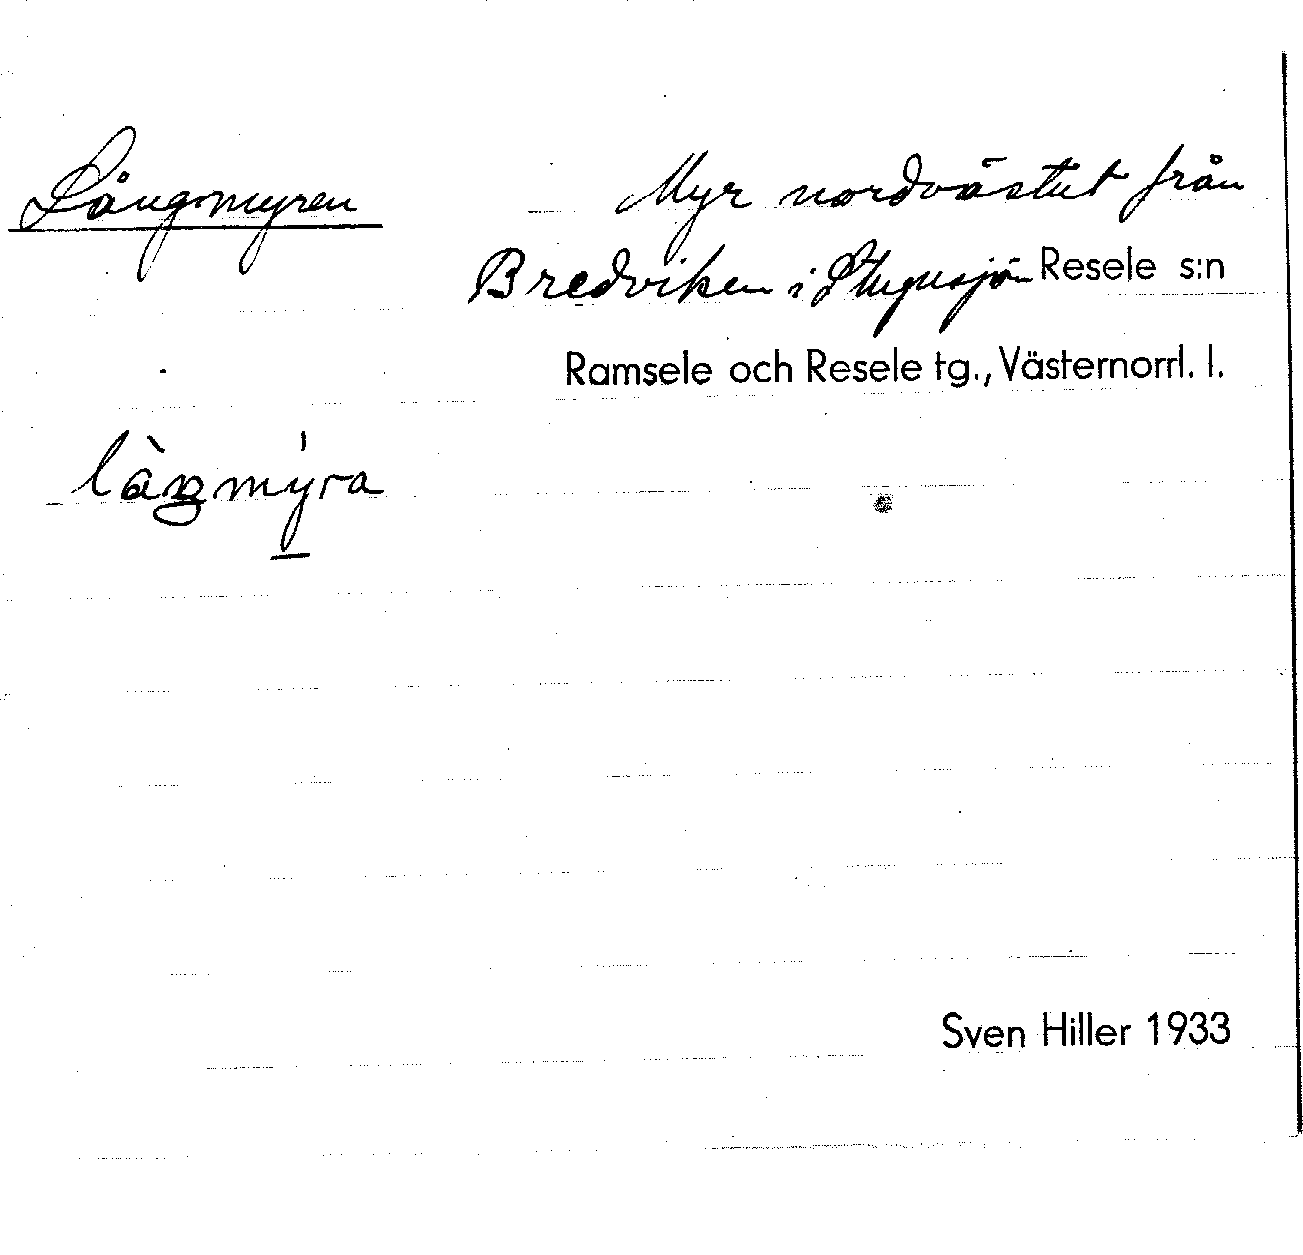 Långmyren
Myr nordvästut från
Bredviken i Stugusjön Resele s:n
Ramsele och Resele tg., Västernorrl. l.
Sven Hiller 1933